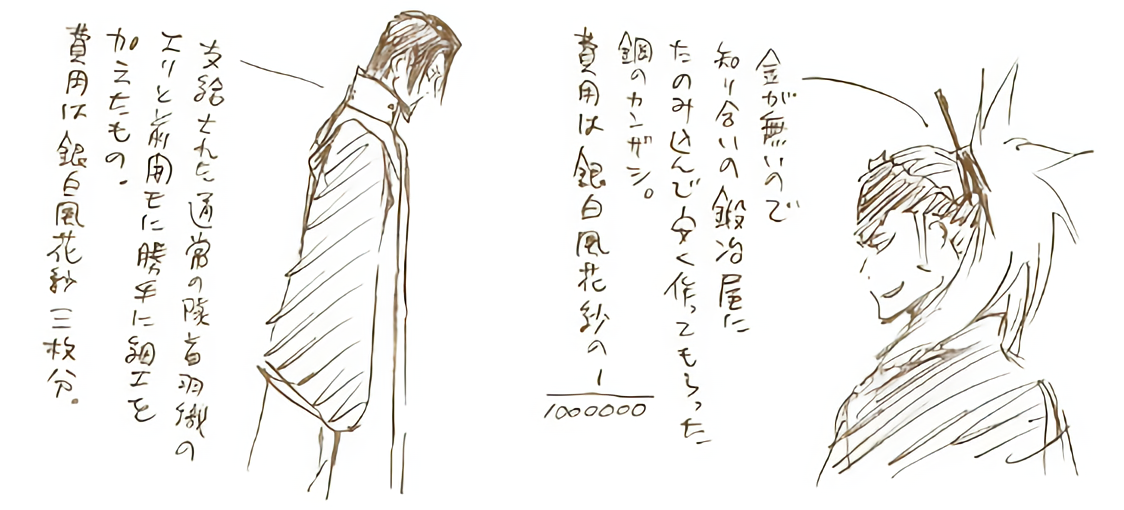 金が無いので
知り合いの鍛冶屋に
たのみ込んで安く作ってもらった
鋼のカンザシ。
費用は銀白風花紗の1/1000000
支給された通常の隊首羽織の
エリと前開キに勝手に細工を
加えたもの。
費用は銀白風花紗三枚分。